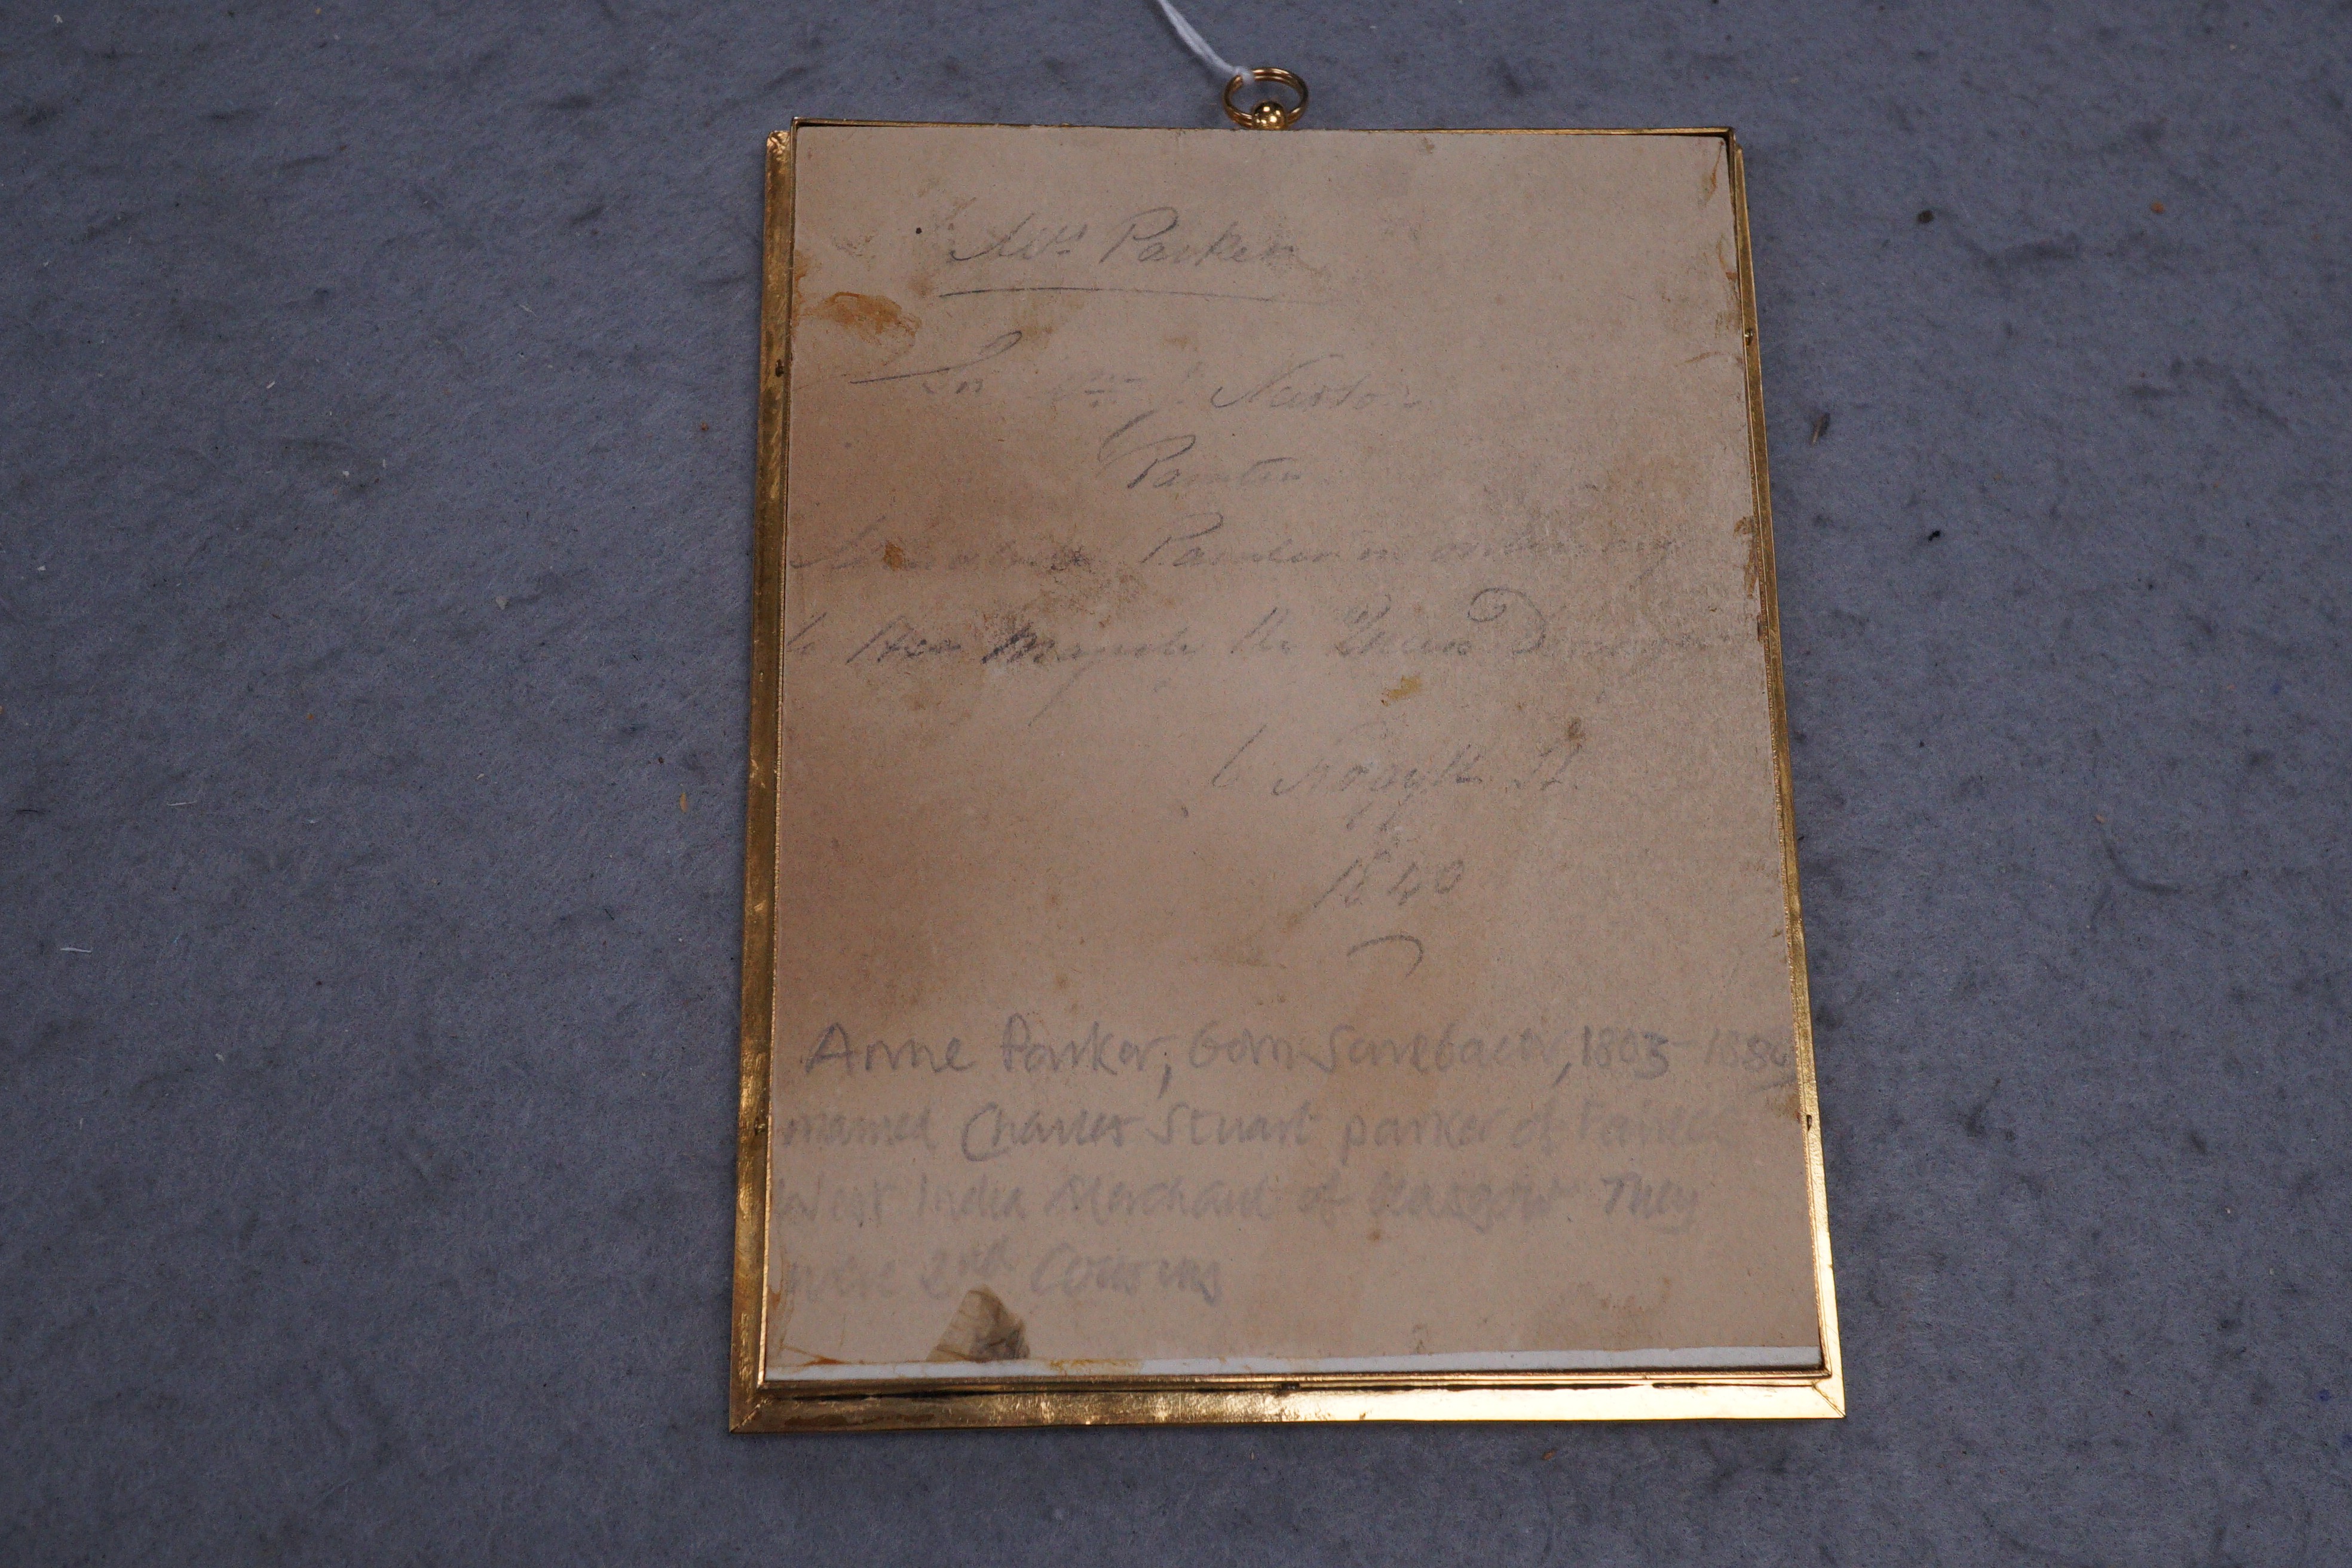 Mrs Parker
Sir Wm J Newton
Painter
Miniature Painter in ordinary
to Her Majesty the Queen Dowager
6 Argyll St.
1840
Anne Parker, born Sandbach, 1803-
married Charles Stuart Parker of Fairlie
West India Merchant of Glasgow They
were 2nd Cousins